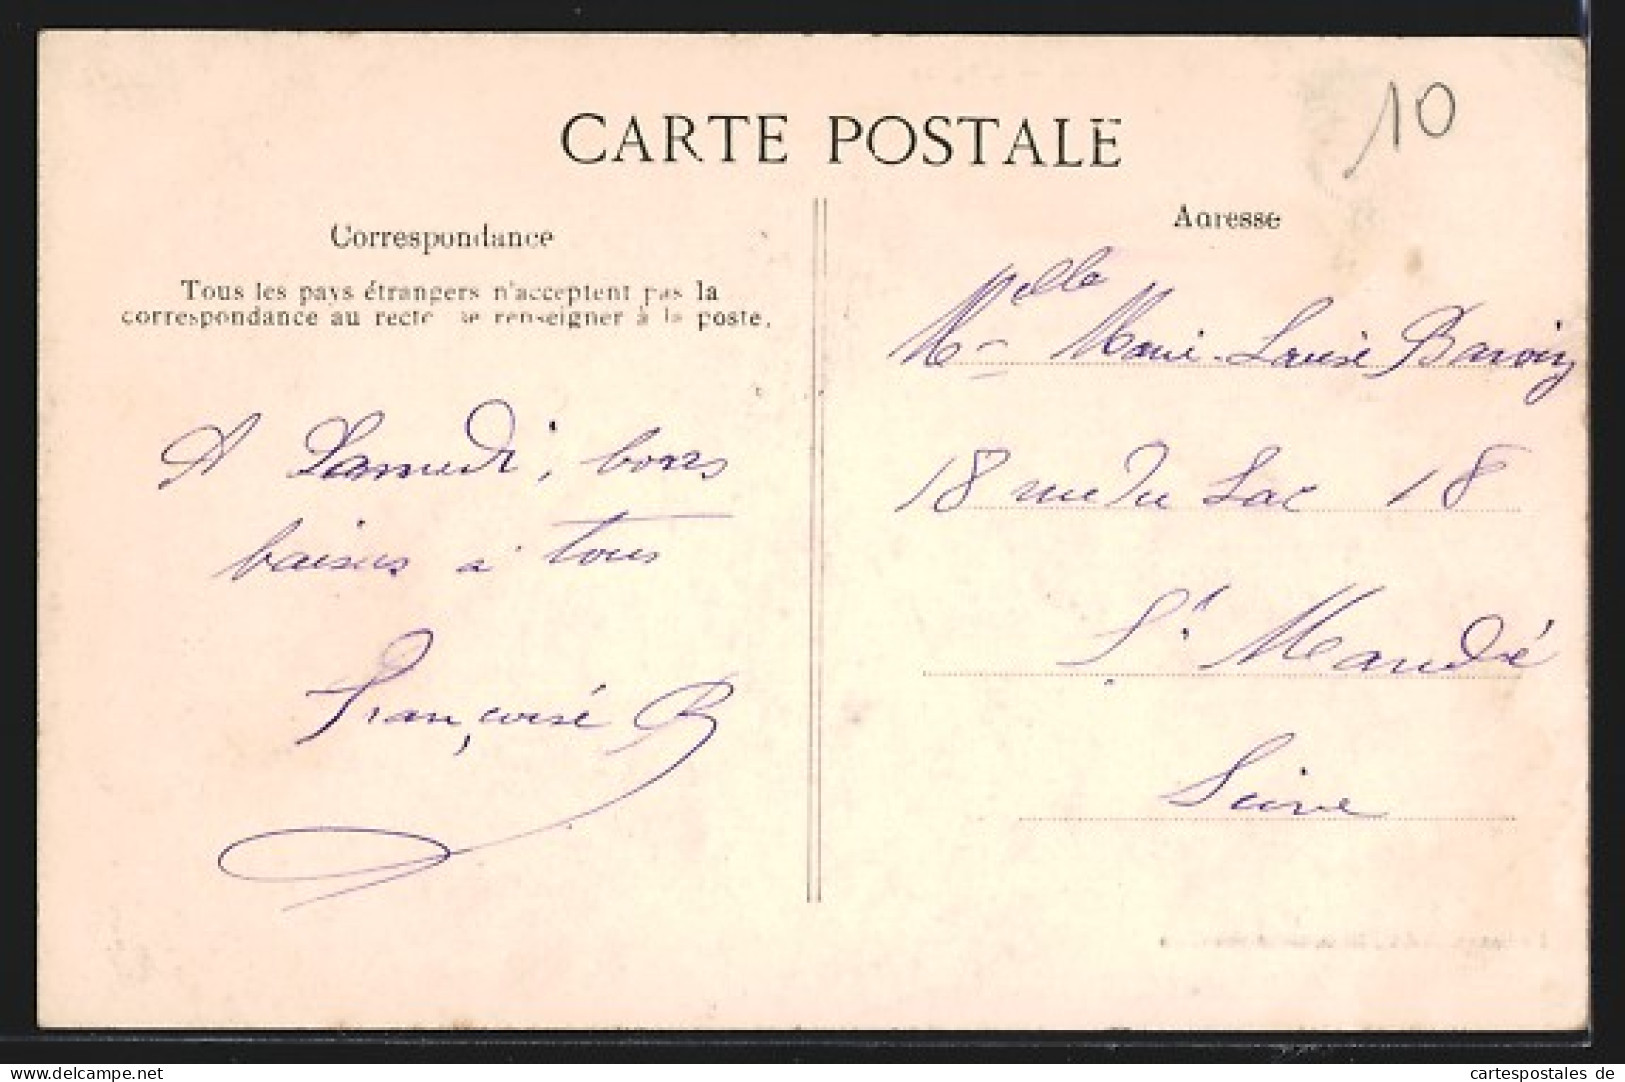 CARTE POSTALE
10
Correspondance
Tous les pays étrangers n'acceptent pas la
correspondance au recto se renseigner à la poste.
A Samedi, bons
baisers à tous
Françoise B
Adresse
Melle
Marie-Louise
18 rue du Lac 18
St Mandé
Seine
delcampe.net
cartespostales de